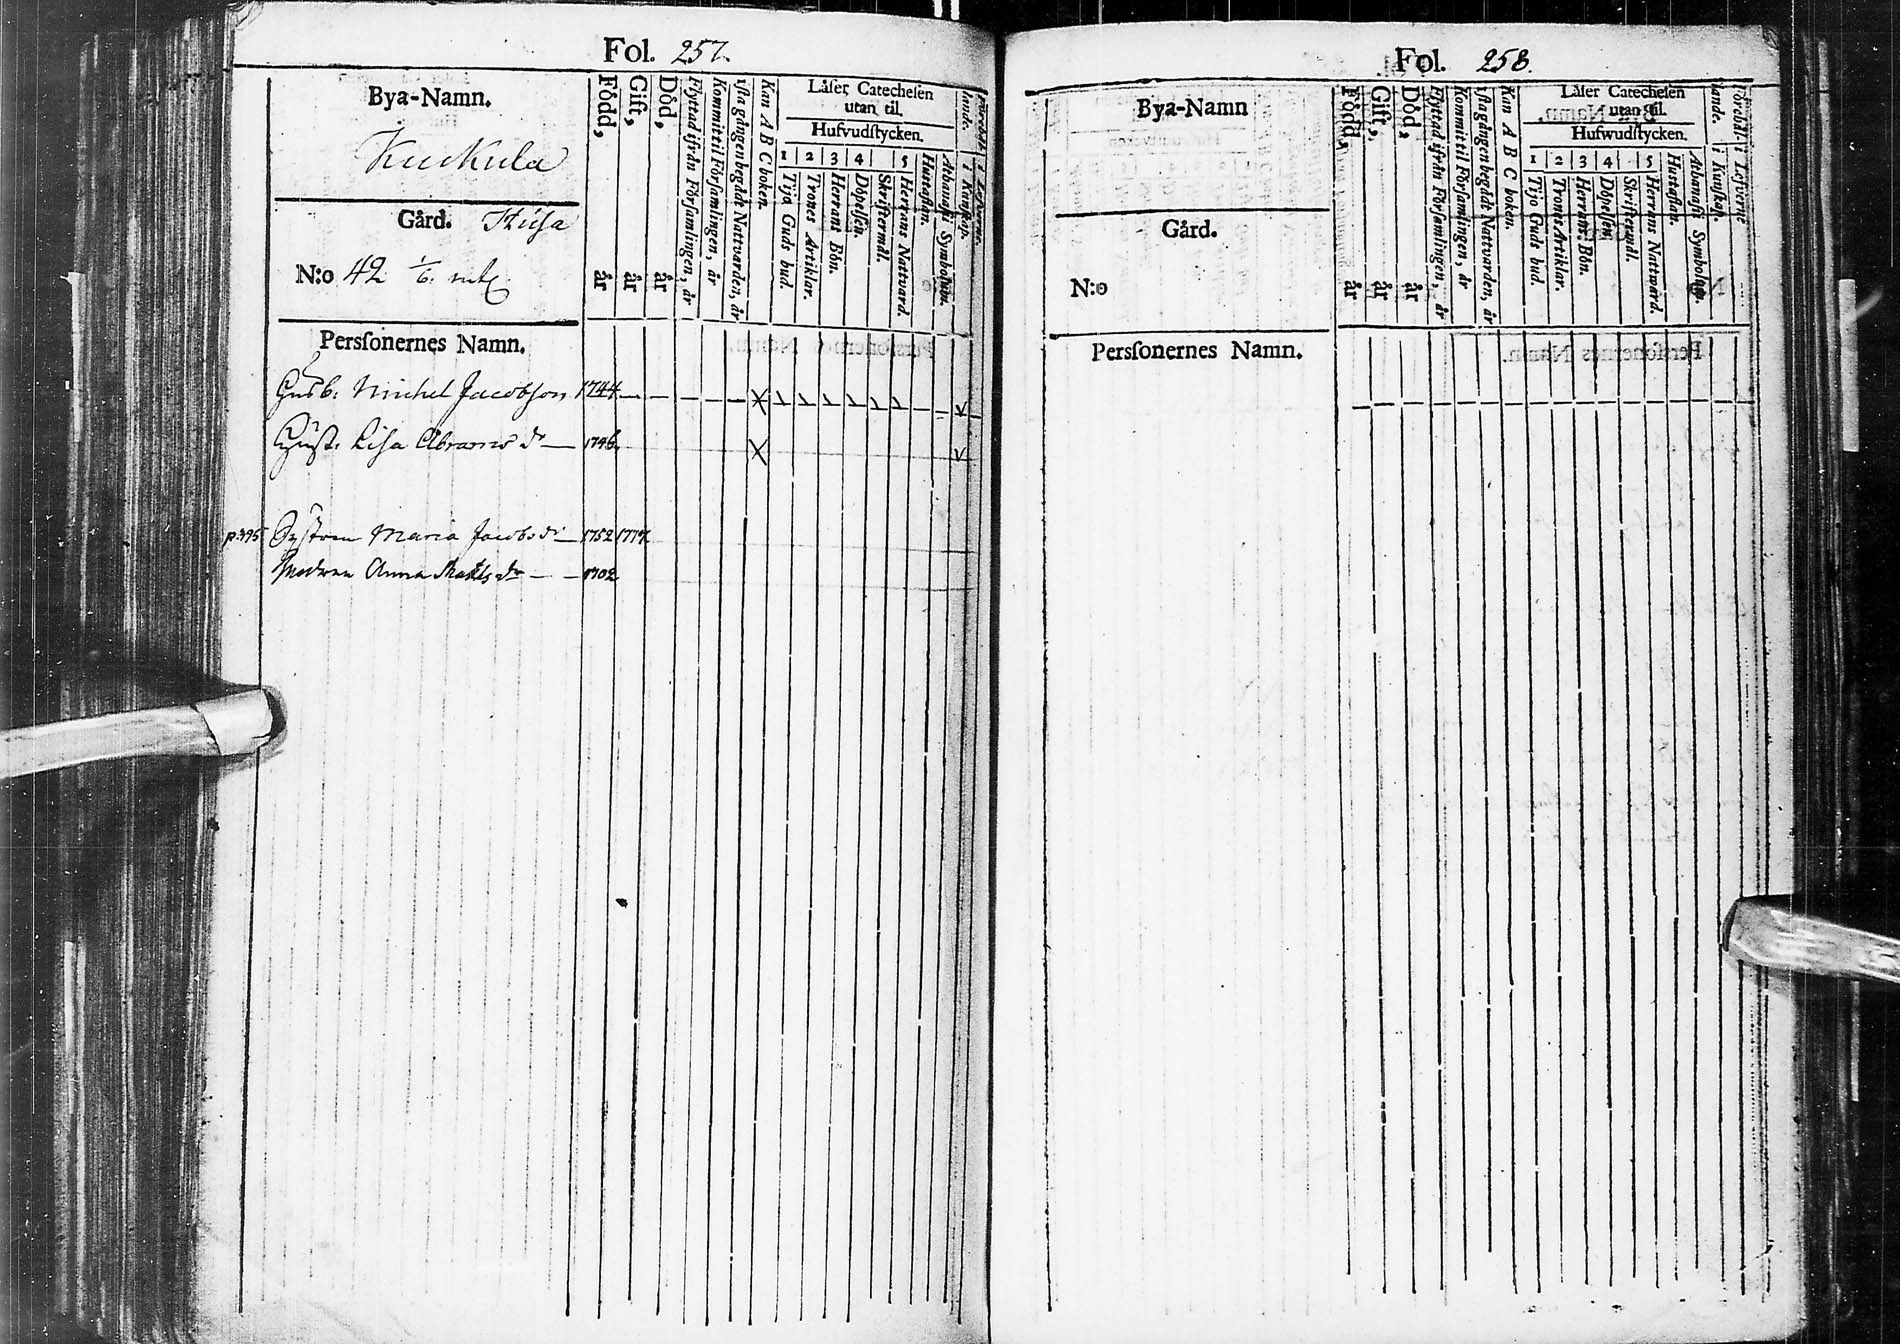 Fol. 257.
Bya-Namn.
Kuckula
Gård.
N:o 42 1/6. mtl
Född, år
Gift, år
Död, år
Flyttad ifrån Församlingen, år
Kommit til Församlingen, år
1sta gången begådt Nattvarden, år
Kan A B C boken.
Låſer Catecheſen
utan til.
Hufvudſtycken.
1 Tijo Guds bud.
2 Trones Artiklar.
3 Herrans Bön.
4 Döpelſen.
Skriftermål.
5 Herrans Nattvard.
Huſtaflan.
Athanaſii Symbolum.
i Kunſkap.
i Lefverne.
Perſonernes Namn.
Husb. Michel Jacobſon 1744
Hust. Liſa Abrams dr 1746
p.395 Systern Maria Jacobs dr 1752 1777
Modren Anna Matts dr 1702
Fol. 258.
Bya-Namn
Gård.
N:o
Född, år
Gift, år
Död, år
Flyttad ifrån Församlingen, år
Kommit til Församlingen, år
1sta gången begådt Nattvarden, år
Kan A B C boken.
Låſer Catecheſen
utan til.
Hufwudſtycken.
1 Tijo Guds bud.
2 Trones Artiklar.
3 Herrans Bön.
4 Döpelſen
Skriftermål.
5 Herrans Nattvard.
Huſtaflan.
Athanaſii Symbolum.
i Kunſkap.
i Lefverne
Perſonernes Namn.